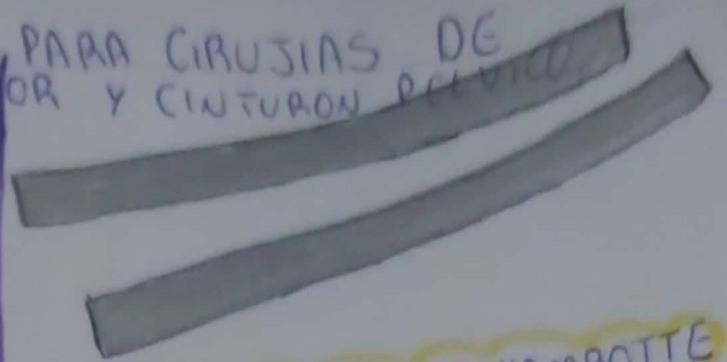 PARA CIRUJIAS DE
OR Y CINTURON PELVICO